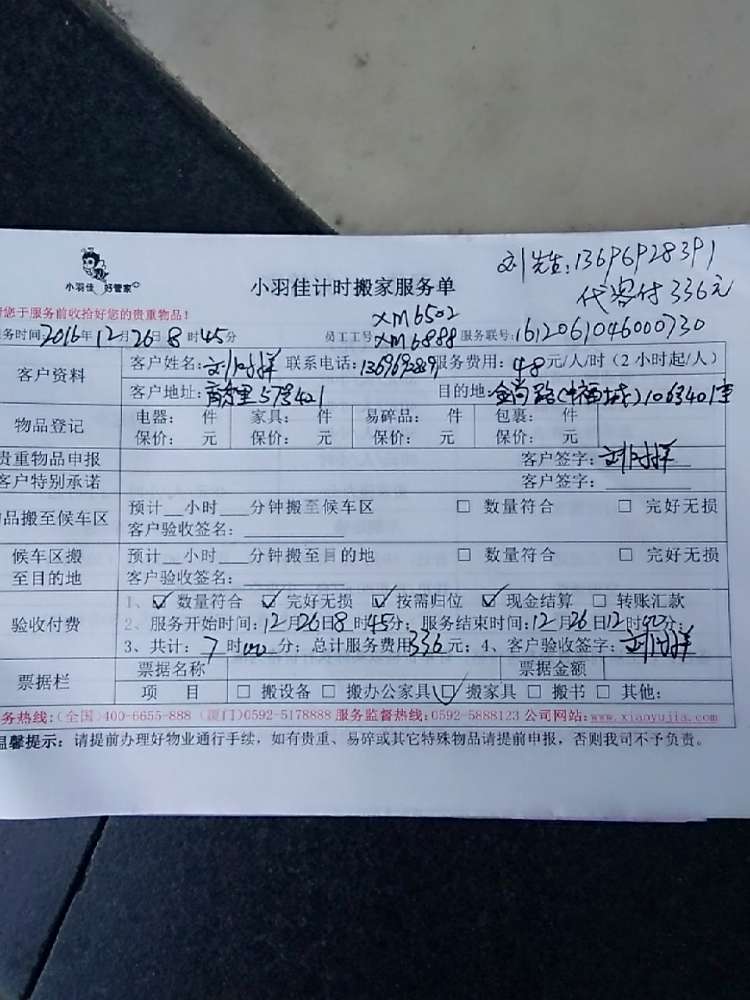 刘先生:13696928391
代客付336元
小羽佳 好管家
小羽佳计时搬家服务单
您于服务前收拾好您的贵重物品!
务时间2016年12月26日8时45分 员工工号 XM6502 XM6888 服务联号:1612061046000730
客户资料
客户姓名: 联系电话: 服务费用:48元/人/时(2小时起/人)
客户地址: 57号421 目的地:
物品登记
电器: 件 家具: 件 易碎品: 件 包裹: 件
保价: 元 保价: 元 保价: 元 保价: 元
贵重物品申报 客户签字:
客户特别承诺 客户签字:
品搬至候车区
预计__小时__分钟搬至候车区 □ 数量符合 □ 完好无损
客户验收签名:
候车区搬至目的地
预计__小时__分钟搬至目的地 □ 数量符合 □ 完好无损
客户验收签名:
验收付费
1、☑ 数量符合 ☑ 完好无损 ☑ 按需归位 ☑ 现金结算 □ 转账汇款
2、服务开始时间:12月26日8时45分;服务结束时间:12月26日12时分;
3、共计:7时00分;总计服务费用336元;4、客户验收签字:
票据栏
票据名称 票据金额
项 目 □ 搬设备 □ 搬办公家具 ☑ 搬家具 □ 搬书 □ 其他:
务热线:(全国)400-6655-888 (厦门)0592-5178888 服务监督热线:0592-5888123 公司网站:www.xiaoyujia.com
温馨提示:请提前办理好物业通行手续,如有贵重、易碎或其它特殊物品请提前申报,否则我司不予负责。